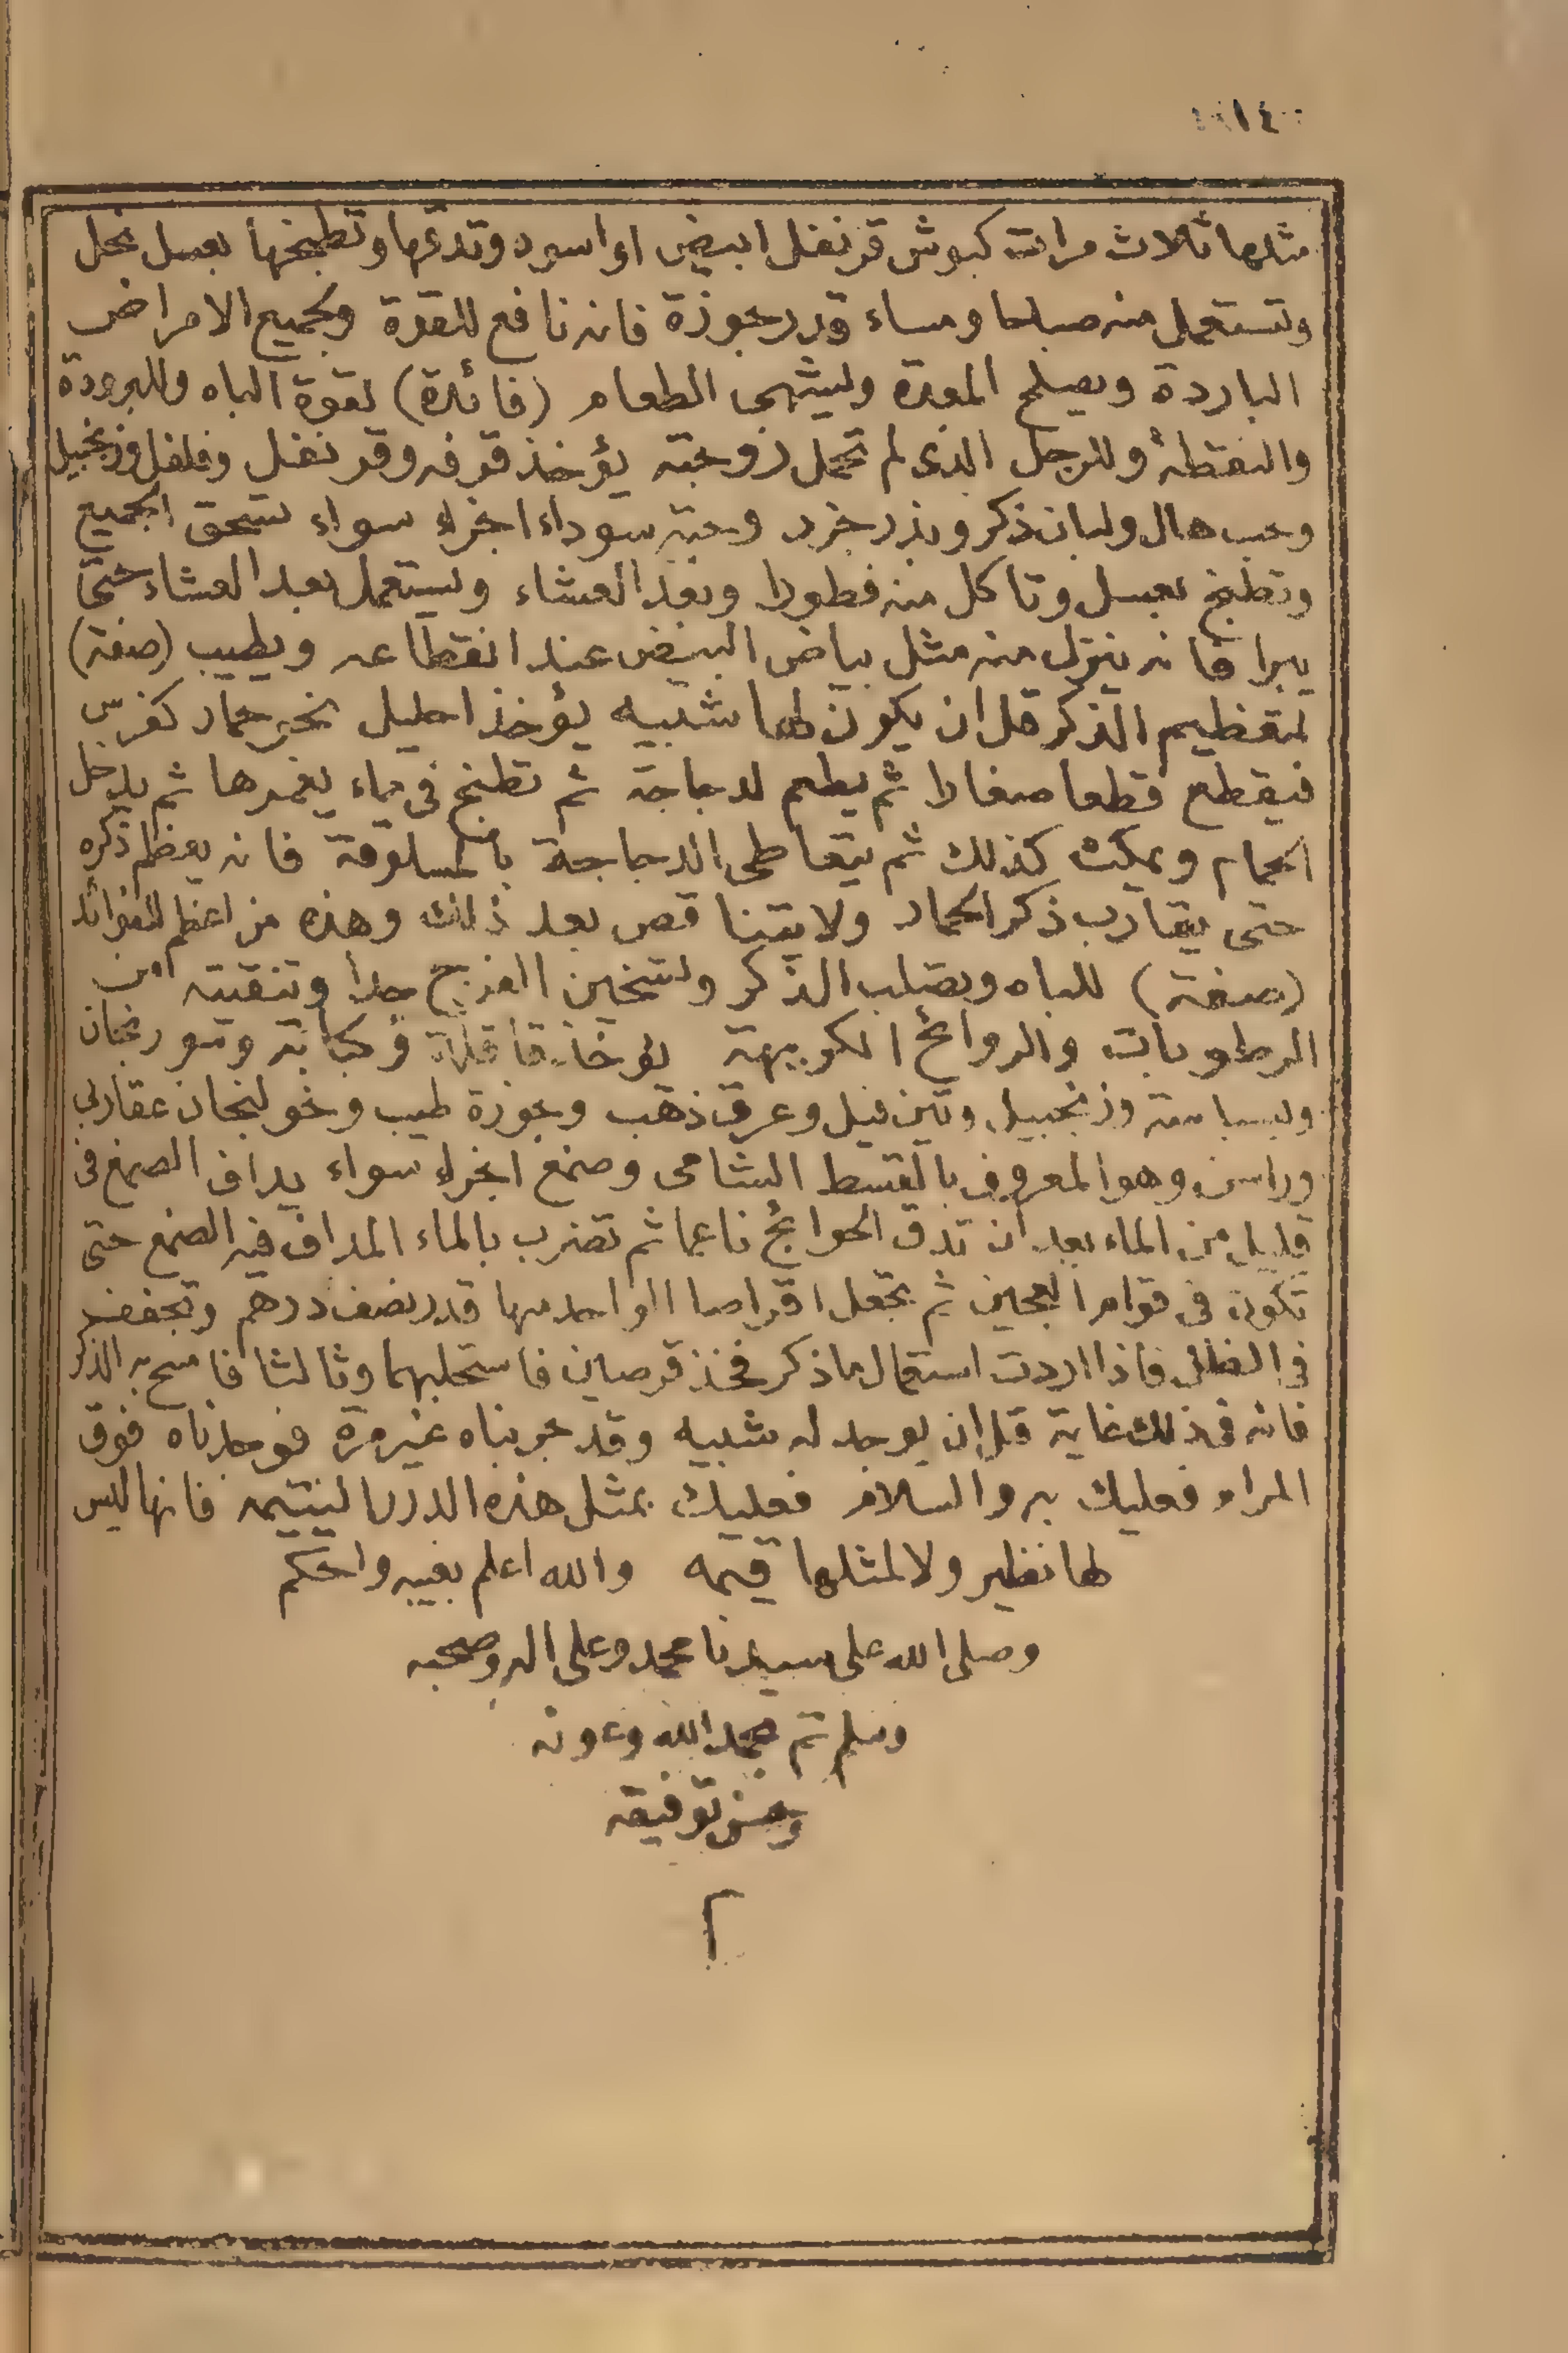 ١٤
مثلها ثلاث مرات كبوش قرنفل ابيض او اسود وتدقها وتطبخها بعسل نحل
وتستعمل منه صباحا ومساء قدر جوزة فانه نافع للقوة ولجميع الامراض
الباردة ويصلح المعدة ويشهى الطعام (فائدة) لقوة الباه وللبرودة
والنقطة وللرجل الذى لم تحمل زوجته يؤخذ قرفه وقرنفل وفلفل وزنجبيل
وحب هال ولبان ذكر وبذر جزر وحبة سوداء اجزاء سواء تسحق الجميع
وتطبخ بعسل وتاكل منه فطورا وبعد العشاء ويستعمل بعد العشاء حتى
يبرا فانه ينزل منه مثل بياض البيض عند انقطاعه ويطيب (صفة)
لتعظيم الذكر قل ان يكون لها شبيه يؤخذ احليل حمار كفرس
فيقطع قطعا صغارا ثم يطعم لدجاجة ثم تطبخ فى ماء يغمرها ثم يدخل
الحمام ويمكث كذلك ثم يتعاطى الدجاجة بالمسلوقة فانه يعظم ذكره
حتى يقارب ذكر الحمار ولا يتناقص بعد ذلك وهذه من اعظم الفوائد
(صفة) للباه ويصلب الذكر ولتسخين الفرج جدا وتنقيته من
الرطوبات والروائح الكريهة يؤخذ قاقلة وكبابة وسورنجان
وبسباسة وزنجبيل وتين فيل وعرق ذهب وجوزة طيب وخولنجان عقاربى
وراسن وهو المعروف بالقسط الشامى وصمغ اجزاء سواء يداف الصمغ فى
قليل من الماء بعد ان تدق الحوائج ناعما ثم تضرب بالماء المداف فيه الصمغ حتى
تكون فى قوام العجين ثم تجعل اقراصا الواحد منها قدر نصف درهم وتجفف
فى الظل فاذا اردت استعمال ما ذكر فخذ قرصين فاستحلبهما وثالثا فامسح به الذكر
فانه فى ذلك غاية قل ان يوجد له شبيه وقد جربناه غير مرة فوجدناه فوق
المرام فعليك به والسلام فعليك بمثل هذه الدرر اليتيمه فانها ليس
لها نظير ولا لمثلها قيمه والله اعلم بغيبه واحكم
وصلى الله على سيدنا محمد وعلى اله وصحبه
وسلم تم بحمد الله وعونه
وحسن توفيقه
م